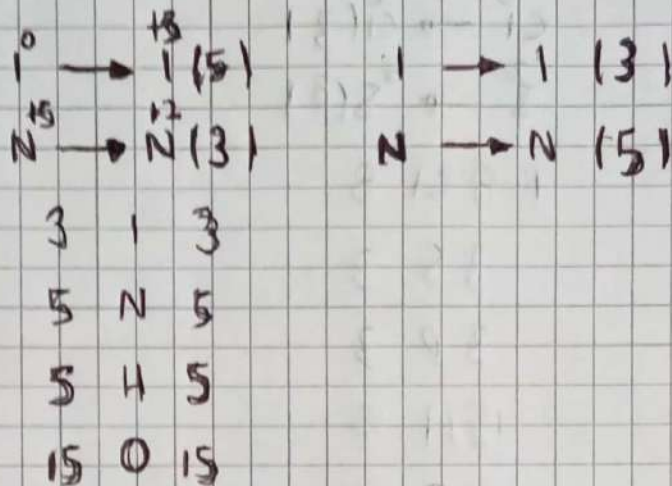 I⁰ → I⁺⁵ (5) I → I (3)
N⁺⁵ → N⁺² (3) N → N (5)
3 I 3
5 N 5
5 H 5
15 O 15